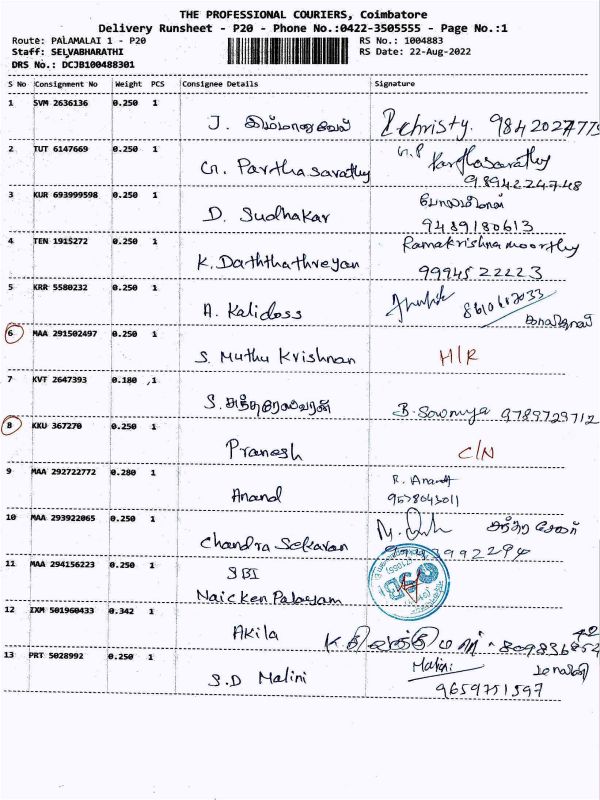 THE PROFESSIONAL COURIERS, Coimbatore
Delivery Runsheet - P20 - Phone No.:0422-3505555 - Page No.:1
Route: PALAMALAI 1 - P20
RS No.: 1004883
Staff: SELVABHARATHI
RS Date: 22-Aug-2022
DRS No.: DCJB100488301
S No Consignment No Weight PCS Consignee Details Signature
1 SVM 2636136 0.250 1
J. இம்மானுவேல்
2 TUT 6147669 0.250 1
G. Parthasarathy
G.P Parthasarathy
9894224748
3 KUR 693999598 0.250 1
D. Sudhakar
9489180613
4 TEN 1915272 0.250 1
K. Daththathreyan
Ramakrishnamoorthy
9994522223
5 KRR 5580232 0.250 1
A. Kalidoss
6 MAA 291502497 0.250 1
S. Muthu Krishnan H/R
7 KVT 2647393 0.180 1
B. Sowmya 9789729712
8 KKU 367270 0.250 1
Pranesh C/N
9 MAA 292722772 0.280 1
Anand
R. Anand
10 MAA 293922065 0.250 1
Chandra Sekaran
11 MAA 294156223 0.250 1
SBI
Naicken Palayam
12 IXM 501960433 0.342 1
Akila
13 PRT 5028992 0.250 1
S.D Malini
Malini
9659751597